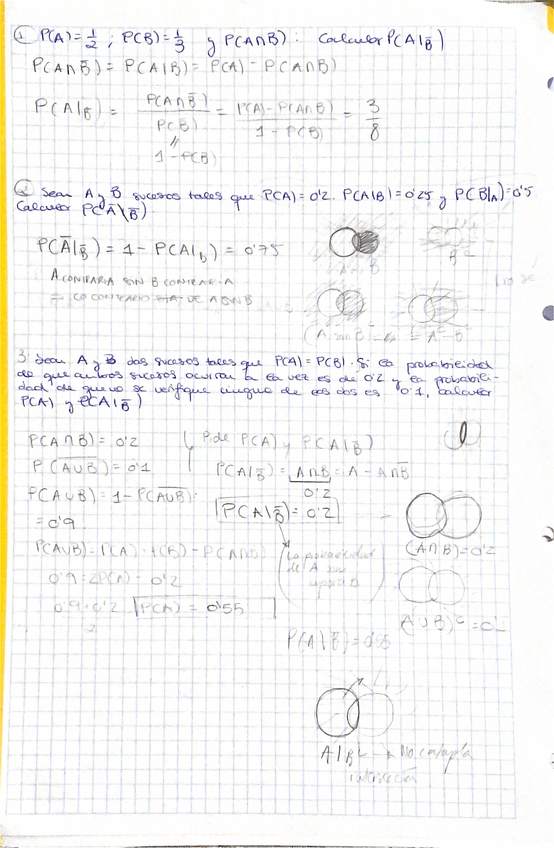 1. P(A)=1/2 ; P(B)=1/3 y P(A∩B) : Calcular P(A|B̅)
P(A∩B̅) = P(A|B) = P(A) - P(A∩B)
P(A|B̅) = P(A∩B̅) / P(B̅) = P(A)-P(A∩B) / 1-P(B) = 3/8
=
1-P(B)
2. Sean A y B sucesos tales que P(A)=0'2. P(A|B)=0'25 y P(B|A)=0'5
Calcular P(A̅|B̅).
P(A̅|B̅) = 1 - P(A|B) = 0'75
A CONTRARIA SIN B CONTRARIA
= LO CONTRARIO DE A SIN B
3. Sean A y B dos sucesos tales que P(A)=P(B). Si la probabilidad
de que ambos sucesos ocurran a la vez es de 0'2 y la probabili-
dad de que no se verifique ninguno de los dos es 0'1, calcular
P(A) y P(A|B̅)
P(A∩B) = 0'2
Pide P(A) y P(A|B̅)
P(A̅∪̅B̅) = 0'1
P(A|B̅) = A∩B = A - A∩B̅
0'2
P(A∪B) = 1 - P(A̅∪̅B̅):
P(A|B̅) = 0'2
= 0'9
(A∩B)=0'2
P(A∪B)=P(A)+P(B)-P(A∩B)
La probabilidad
de A sin
0'9=2P(A)-0'2
0'9+0'2 P(A) = 0'55
2
(A∪B)ᶜ=0'1
P(A|B̅)=0'55
A|Bᶜ → No
intersección